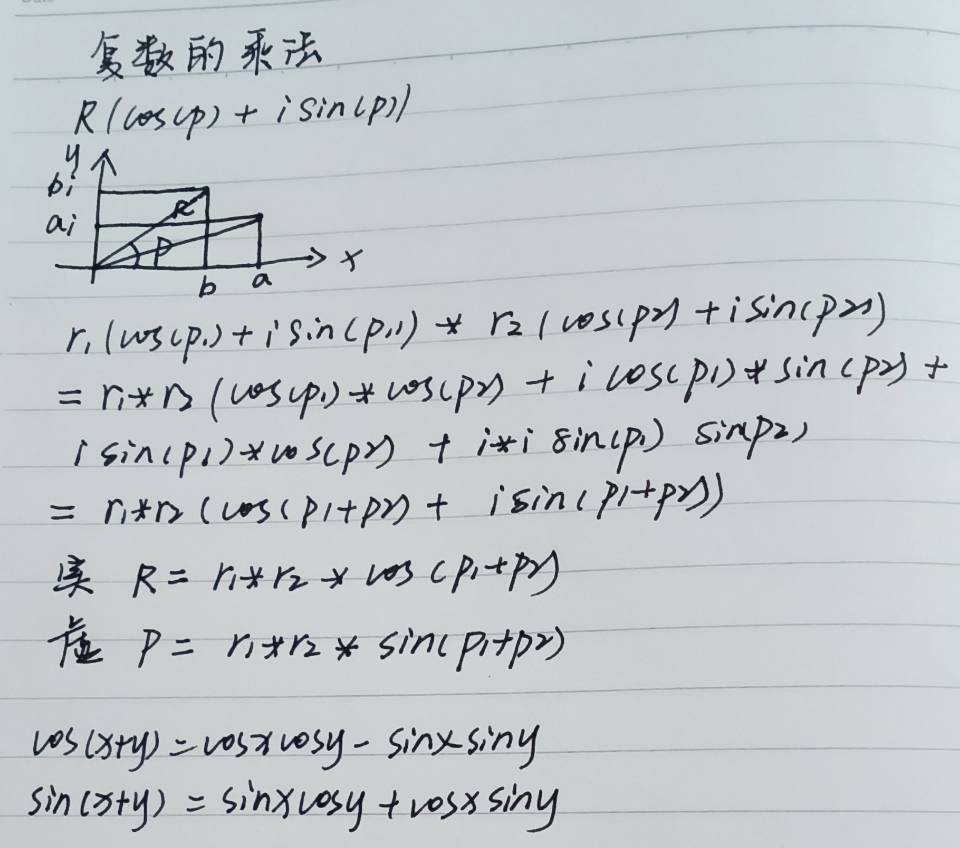 复数的乘法
R(cos(p) + i sin(p))
y
bi
ai
R
P
x
b
a
r1(cos(p1) + i sin(p1)) * r2(cos(p2) + i sin(p2))
= r1*r2 (cos(p1) * cos(p2) + i cos(p1) * sin(p2) +
i sin(p1) * cos(p2) + i*i sin(p1) sin(p2)
= r1*r2 (cos(p1+p2) + i sin(p1+p2))
实 R = r1*r2 * cos(p1+p2)
虚 P = r1*r2 * sin(p1+p2)
cos(x+y) = cosxcosy - sinxsiny
sin(x+y) = sinxcosy + cosxsiny